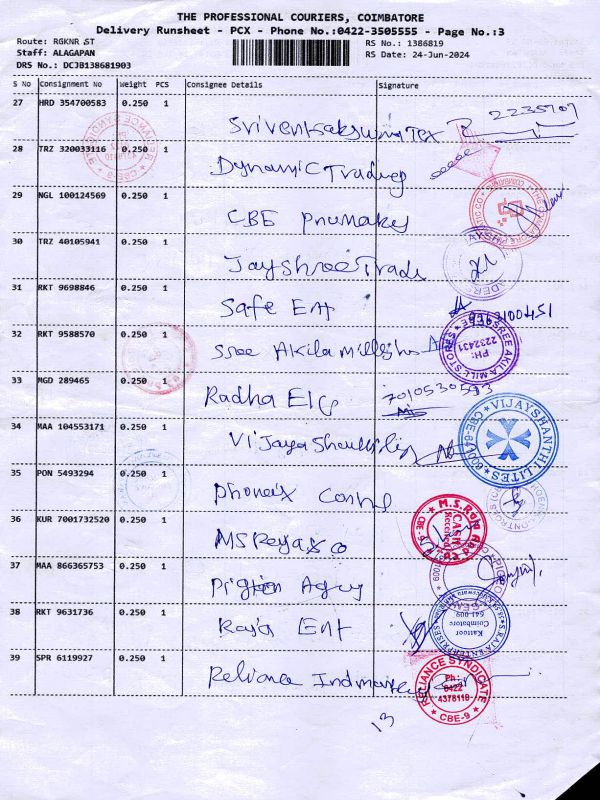 THE PROFESSIONAL COURIERS, COIMBATORE
Delivery Runsheet - PCX - Phone No.:0422-3505555 - Page No.:3
Route: RGKNR ST
RS No.: 1386819
Staff: ALAGAPAN
RS Date: 24-Jun-2024
DRS No.: DCJB138681903
S No Consignment No Weight PCS Consignee Details Signature
27 HRD 354700583 0.250 1
28 TRZ 320033116 0.250 1 Dynamic Trading
29 NGL 100124569 0.250 1 CBE
30 TRZ 40105941 0.250 1 Jayshree Trade
31 RKT 9698846 0.250 1 Safe Ent
32 RKT 9588570 0.250 1 Sree Akila Millstores
SREE AKILA MILL STORES PH: 2232431
33 MGD 289465 0.250 1 Radha Elc 7010530593
34 MAA 104553171 0.250 1
VIJAYSHANTHI LITES
35 PON 5493294 0.250 1 Phoneix
36 KUR 7001732520 0.250 1 MS Raja & co
M.S. Raja CASH Received
37 MAA 866365753 0.250 1 Pigion Agncy
38 RKT 9631736 0.250 1 Raja Ent
Kattoor Coimbatore 641 009
39 SPR 6119927 0.250 1 Reliance
RELIANCE SYNDICATE Ph: 0422 CBE-9
13